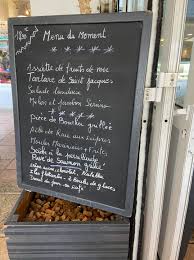 Menu du Moment
Assiette de fruits de mer
Tartare de Saint Jacques
Salade
Melon et jambon Serrano
Pièce de Boucher grillée
Aile de Raie aux câpres
Moules Marinières + Frites
Seiche à la persillade
Pavé de Saumon grillé
2 Boules de glaces